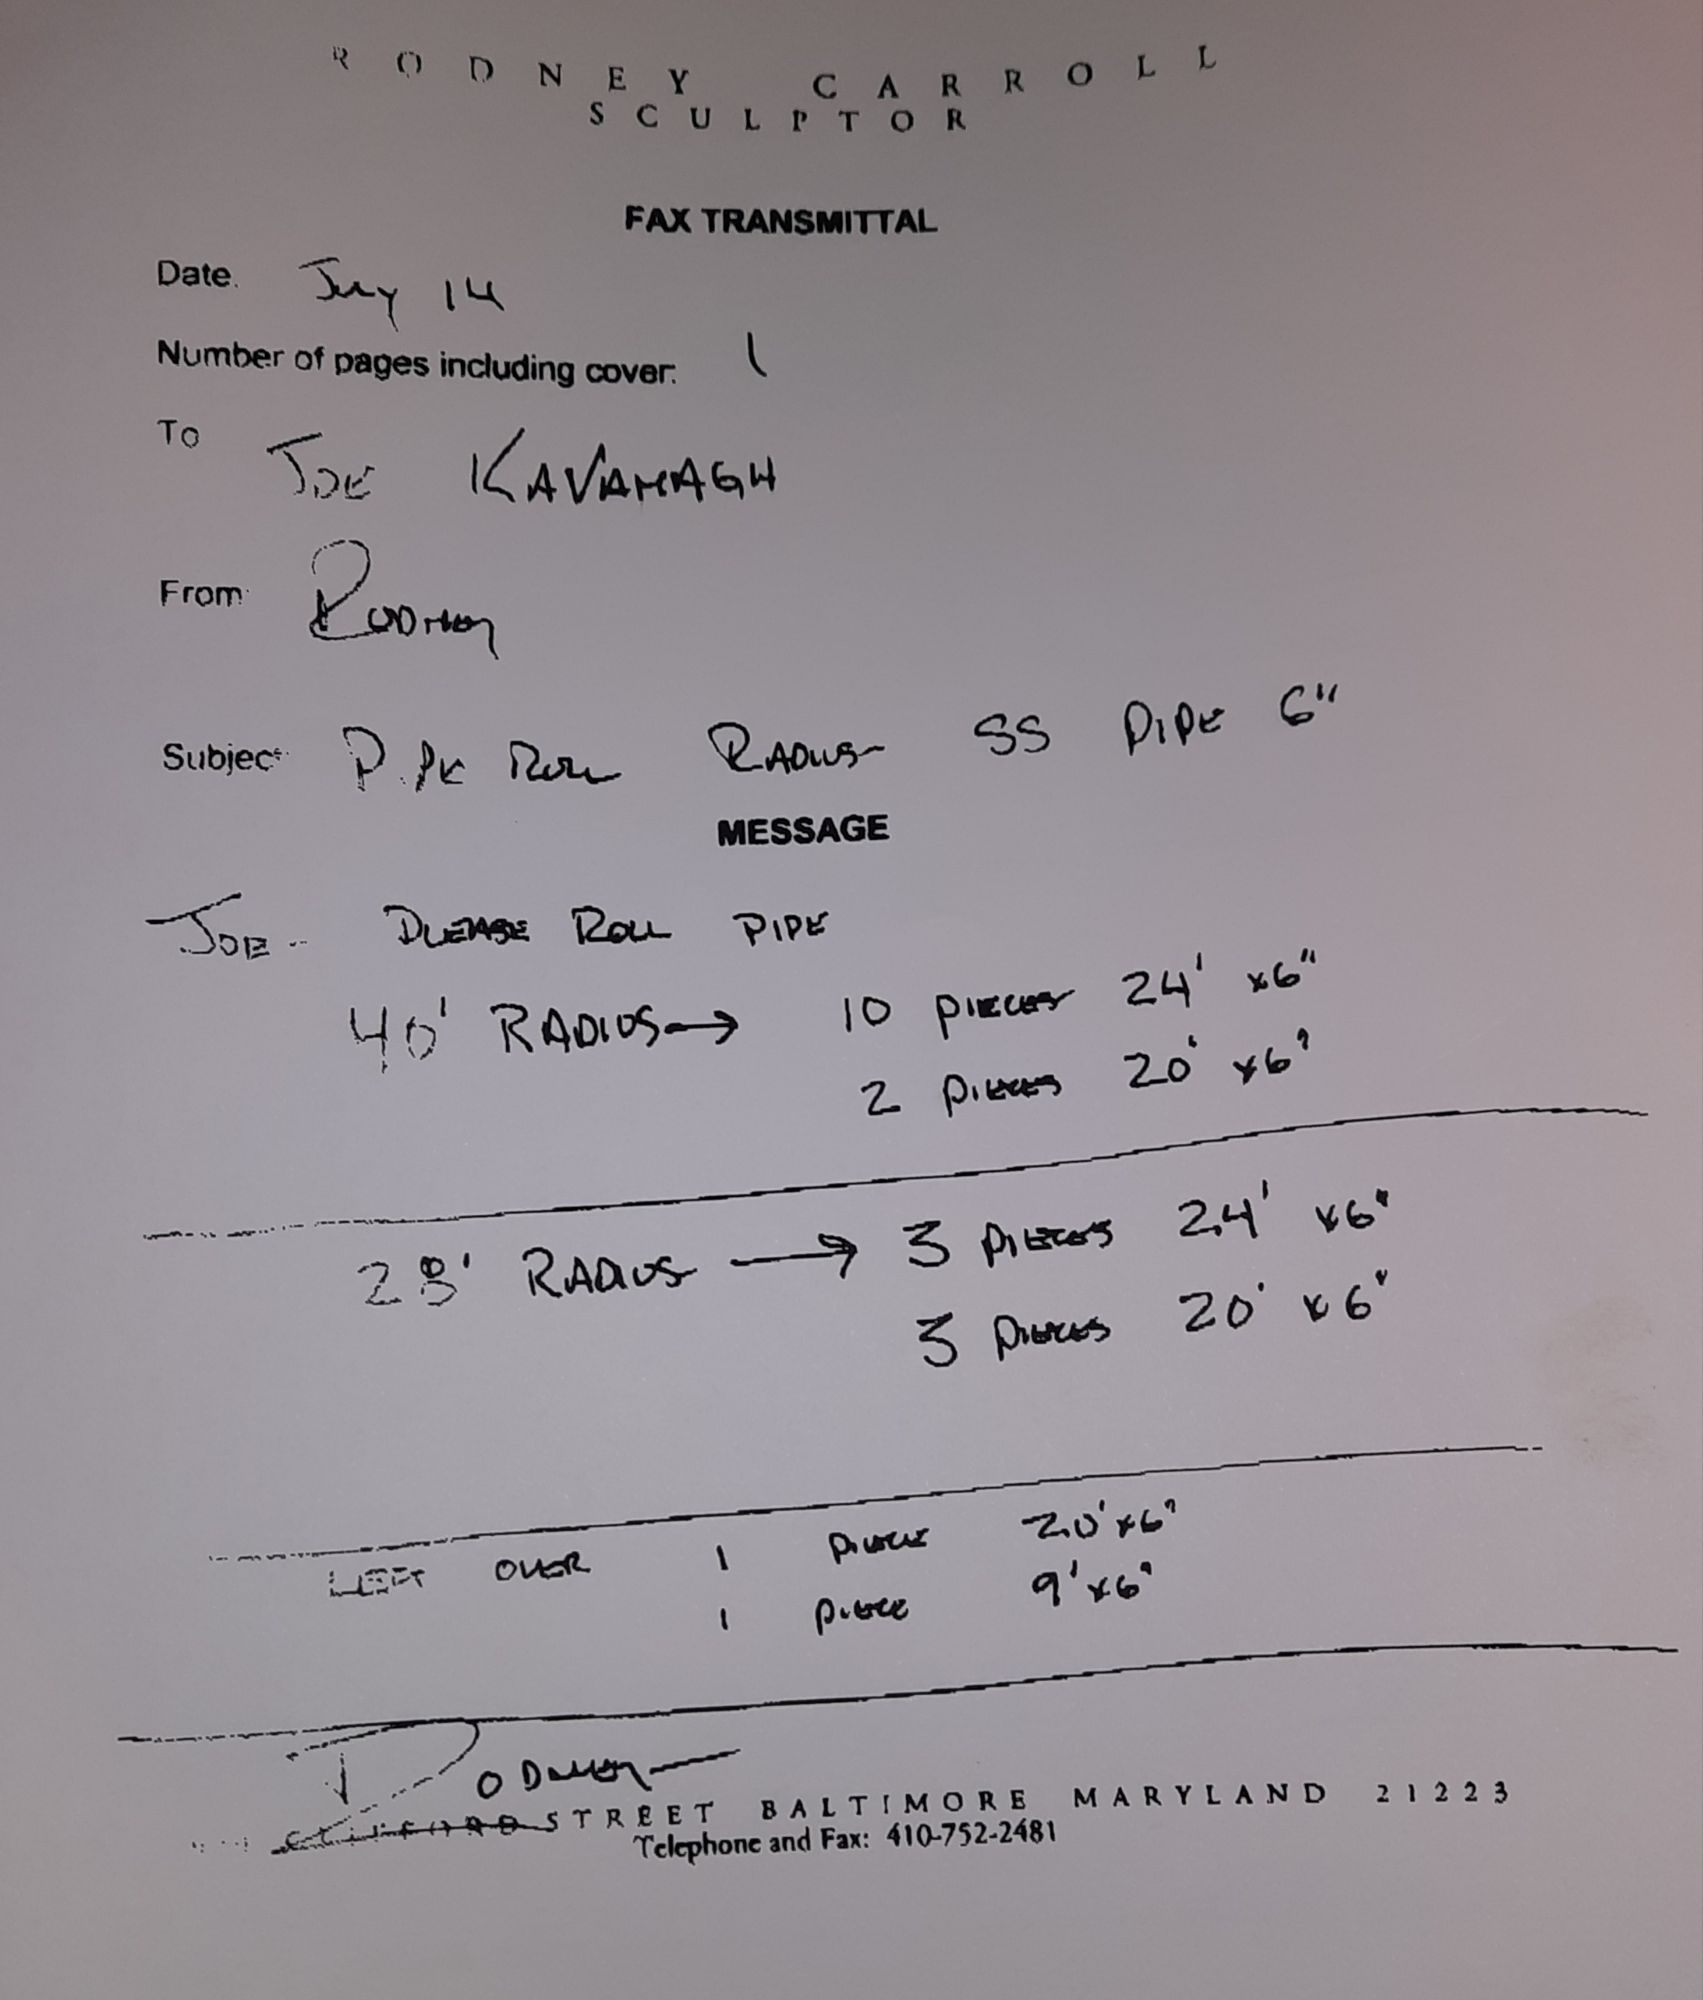 RODNEY CARROLL
SCULPTOR
FAX TRANSMITTAL
Date. July 14
Number of pages including cover: 1
To JOE KAVANAGH
From RODNEY
Subject PIPE ROLL RADIUS SS PIPE 6"
MESSAGE
JOE - PLEASE ROLL PIPE
40' RADIUS → 10 PIECES 24' x6"
2 PIECES 20' x6"
28' RADIUS → 3 PIECES 24' x6"
3 PIECES 20' x6"
LEFT OVER 1 PIECE 20'x6"
1 PIECE 9'x6"
RODNEY
STREET BALTIMORE MARYLAND 21223
Telephone and Fax: 410-752-2481